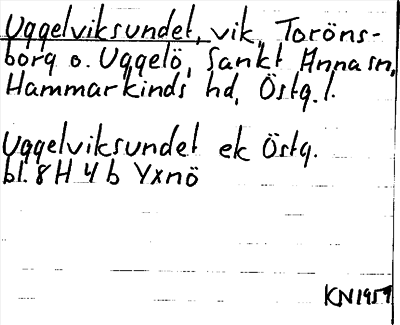 Uggelviksundet, vik, Toröns-
borg o. Uggelö, Sankt Anna sn,
Hammarkinds hd, Östg. l.
Uggelviksundet ek Östg.
bl. 8 H 4 b Yxnö
KN 1959